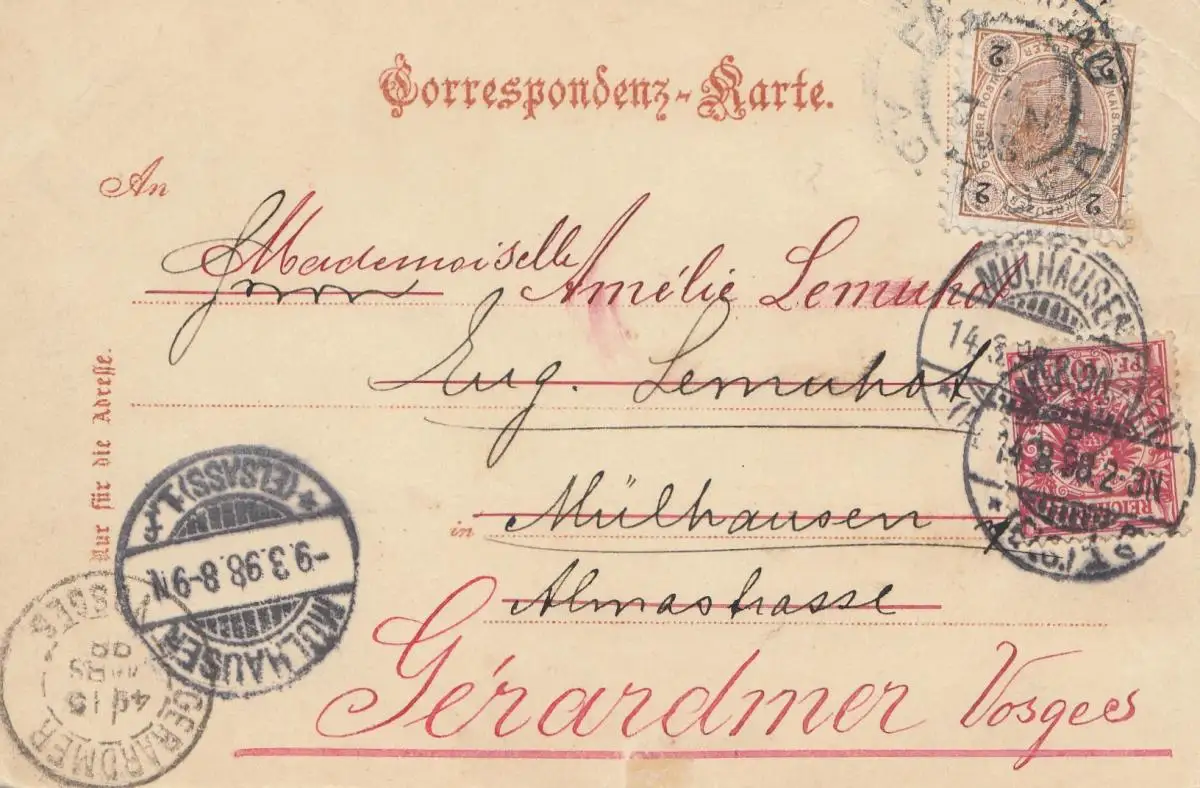 Correspondenz-Karte.
An
Mademoiselle Amélie Lemuhot
Eug. Lemuhot
in Mülhausen
Almastrasse
Gérardmer Vosges
Nur für die Adresse.
2 2
2 2
MÜLHAUSEN
14.3.98
14.3.98.2-3N
MÜLHAUSEN
-9.3.98.8-9N
*(ELSASS)1.*
GERARDMER
15
MARS
98
VOSGES